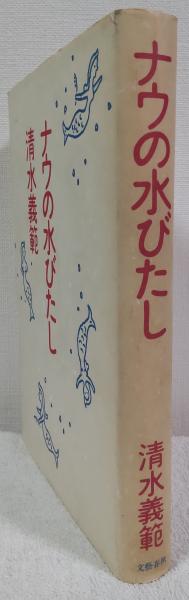 ナウの水びたし
清水義範
ナウの水びたし
清水義範
文藝春秋